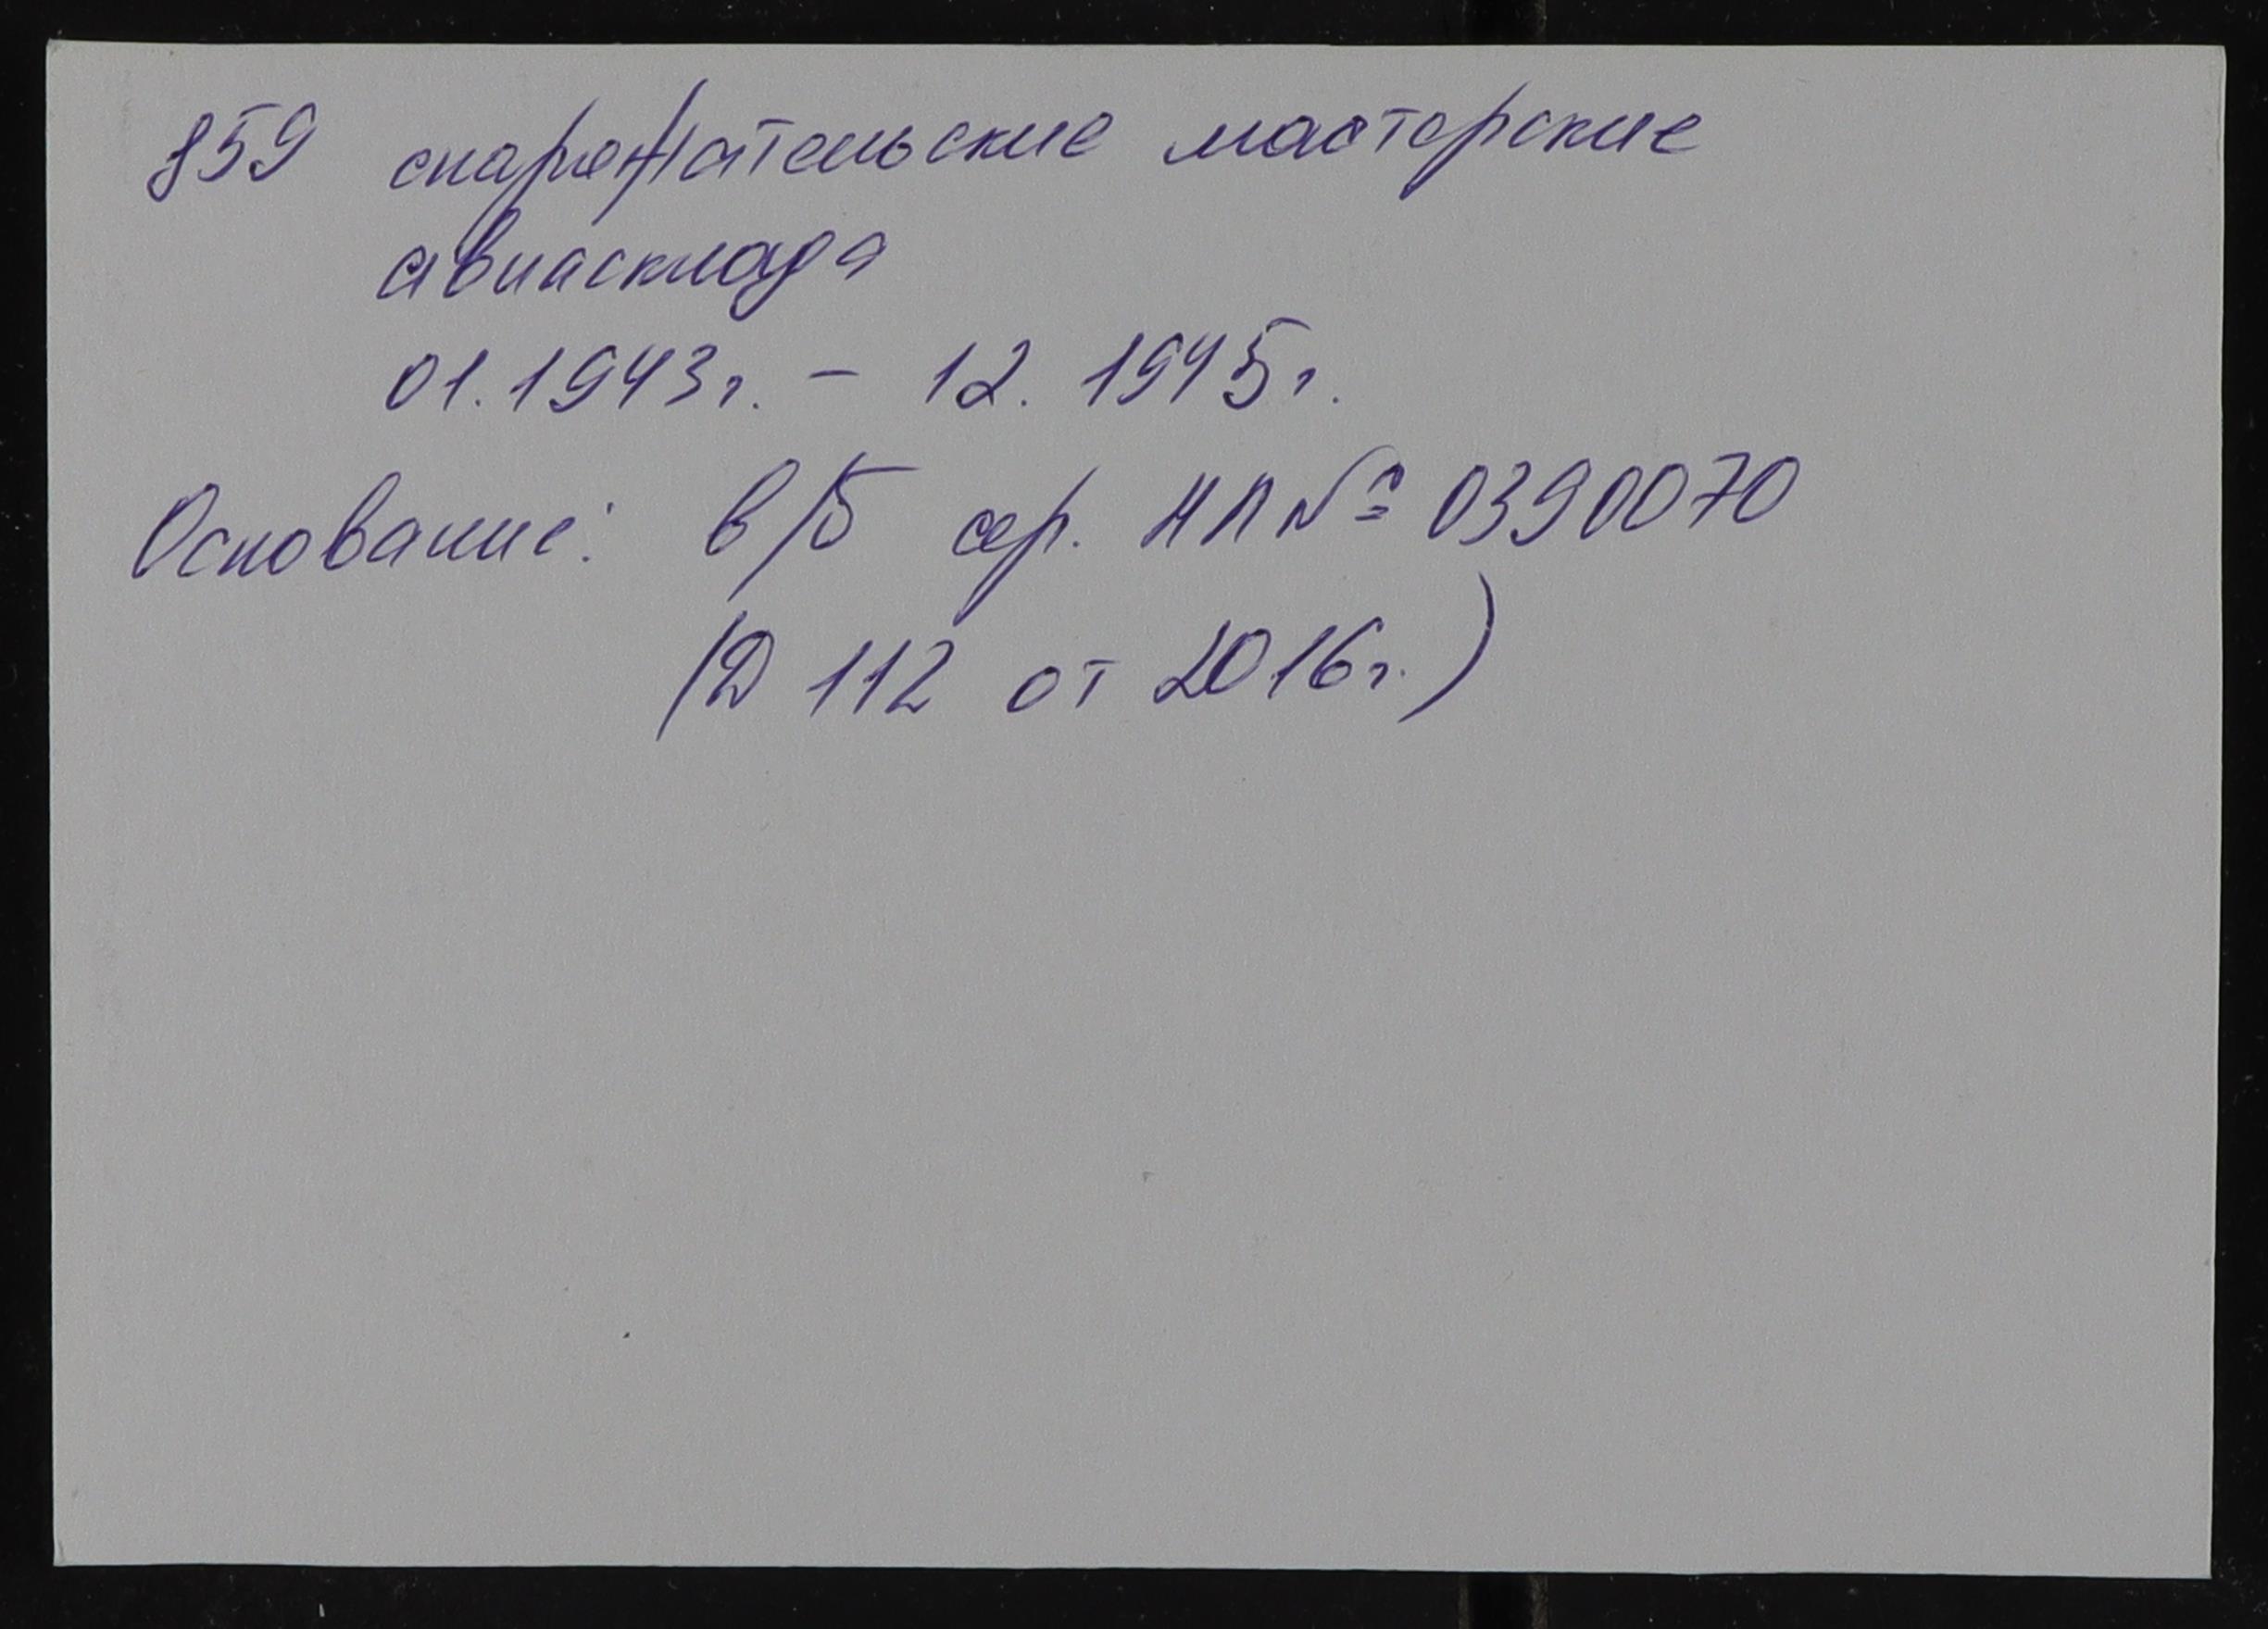 859 снаряжательские мастерские
авиасклада
01.1943г. - 12.1945г.
Основание: в/б сер. НП № 0390070
(Д 112 от 2016г.)